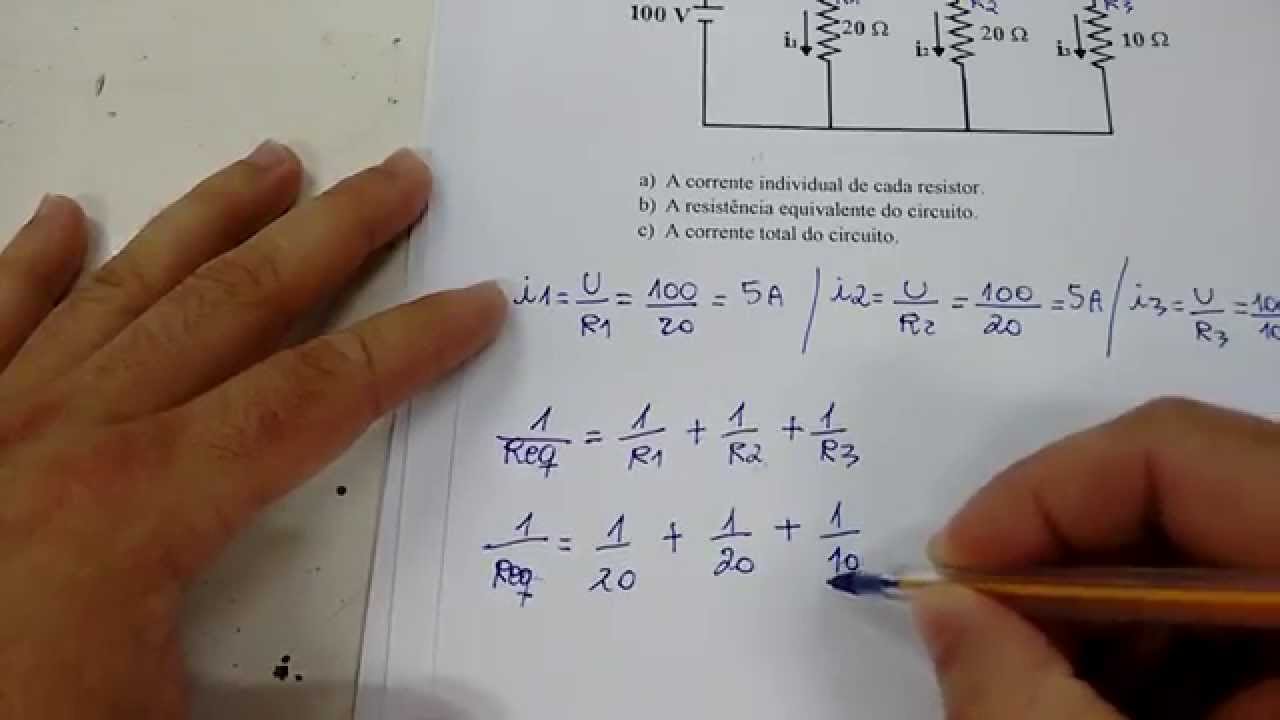 100 V
i₁ 20 Ω
i₂ R2 20 Ω
i₃ R3 10 Ω
a) A corrente individual de cada resistor.
b) A resistência equivalente do circuito.
c) A corrente total do circuito.
i1 = U/R1 = 100/20 = 5A / i2 = U/R2 = 100/20 = 5A / i3 = U/R3 =
1/Req = 1/R1 + 1/R2 + 1/R3
1/Req = 1/20 + 1/20 + 1/10